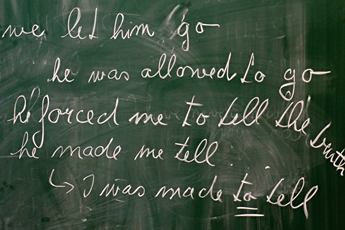 we let him go
he was allowed to go
he forced me to tell the truth
he made me tell
↳ I was made to tell